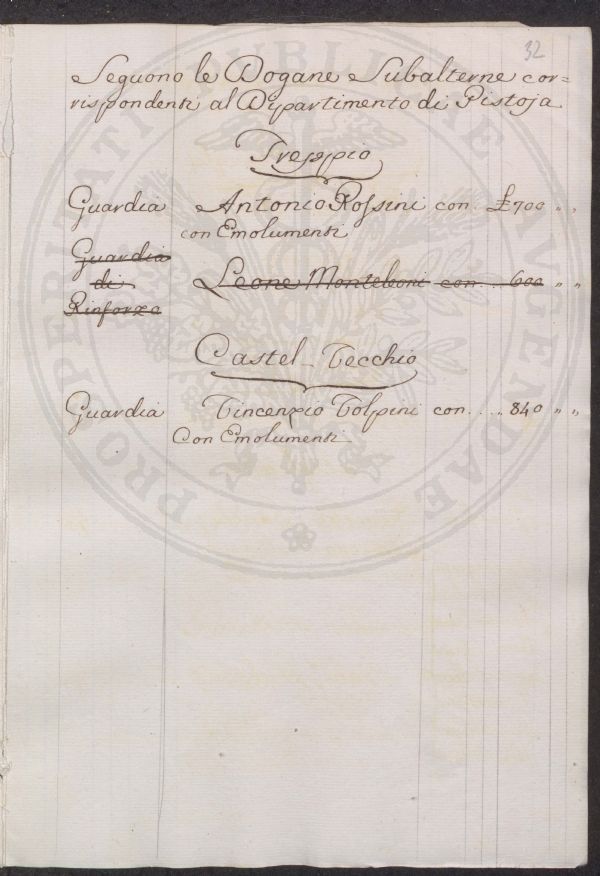 32
Seguono le Dogane Subalterne cor=
rispondenti al Dipartimento di Pistoja
Treppio
Guardia Antonio Rossini con £ 700 " "
con Emolumenti
Guardia
di Leone Monteleoni con 600 " "
Rinforzo
Castel Vecchio
Guardia Vincenzio Volpini con .... 840 " "
Con Emolumenti
PRO DEPRITATI PUBLICAE AUGENDAE